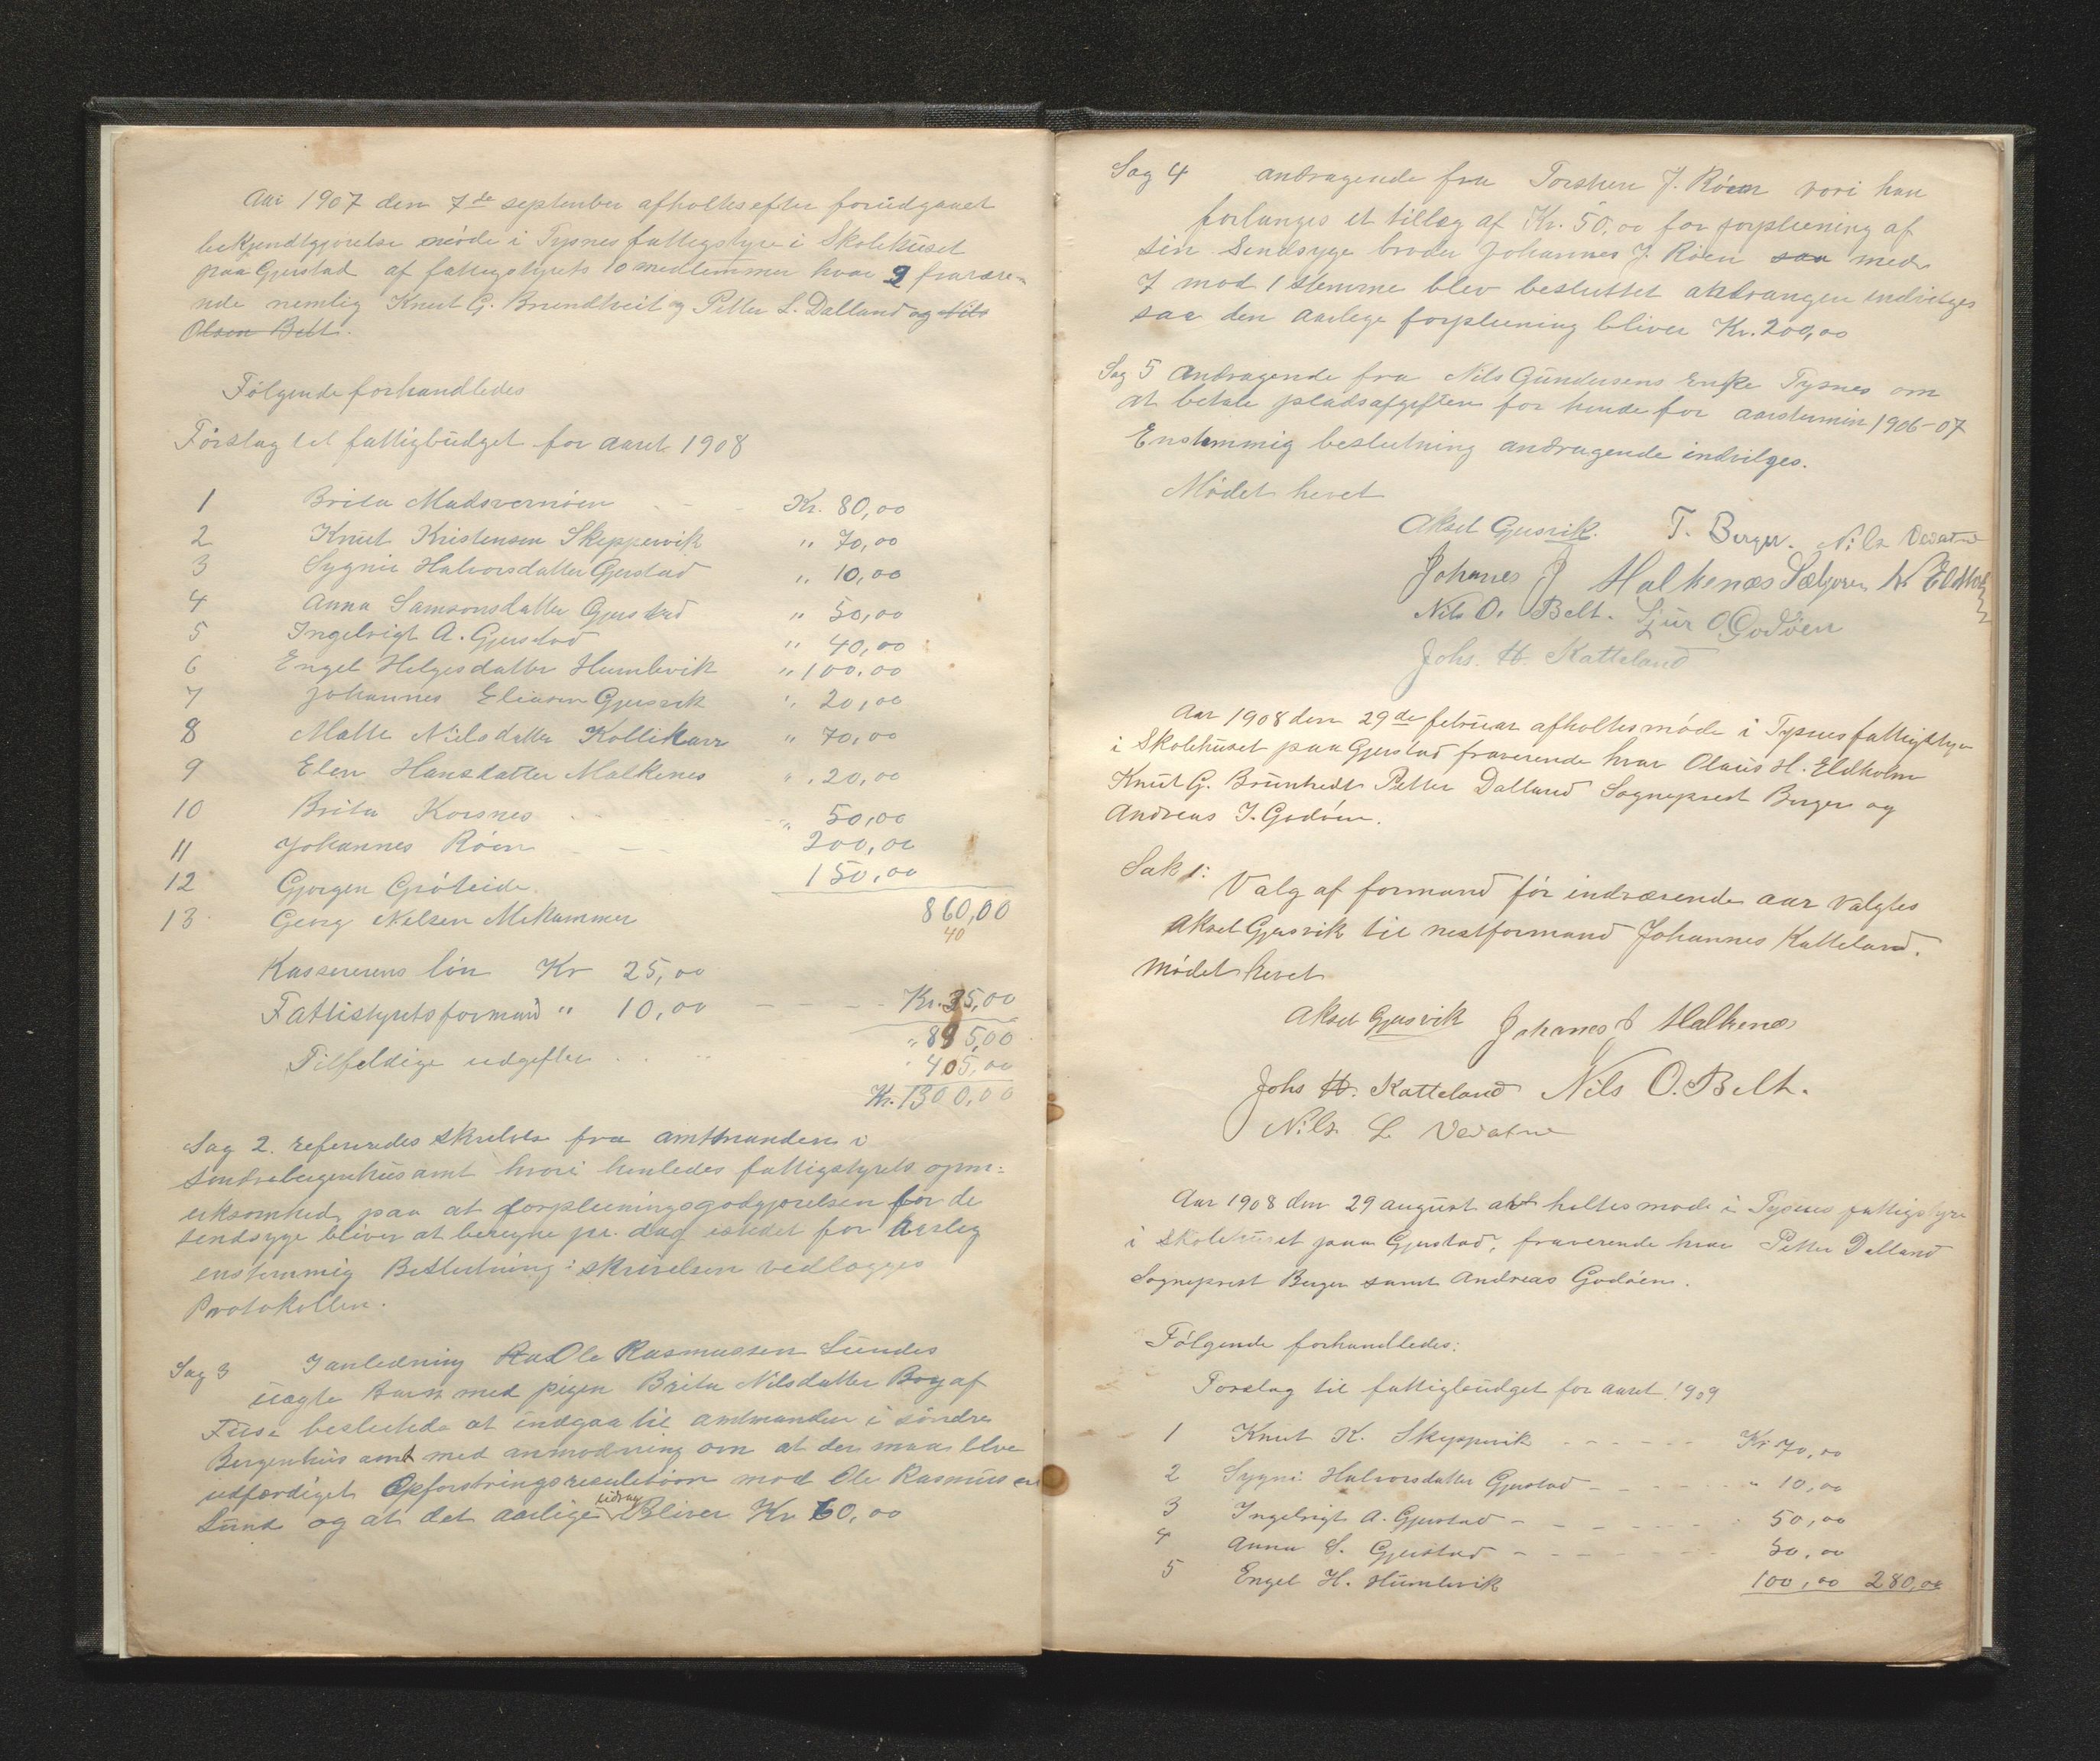 Aar 1907 den 7de september afholtes efter forudgaaet
bekjendtgjørelse møde i Tysnes fattigstyre i Skolehuset
paa Gjerstad af fattigstyrets 10 medlemmer hvar 2 fravære-
nde nemlig Knut G. Brundtveit og Petter L. Dalland og Nils
Olsen Belt.
Følgende forhandledes
Førslag til fattigbudget for aaret 1908
1 Brita Madsvernøen - - - Kr. 80,00
2 Knut Kristensen Skeppevik " 70,00
3 Sygnie Halvorsdatter Gjerstad " 10,00
4 Anna Samsonsdatter Gjerstad " 50,00
5 Ingelvigt A. Gjerstad " 40,00
6 Engel Helgesdatter Humlevik " 100,00
7 Johannes Eliasen Gjersvik " 20,00
8 Malle Nilsdatter Kollikarr " 70,00
9 Elen Hansdatter Malkenes " 20,00
10 Brita Korsnes " 50,00
11 Johannes Røen - - 200,00
12 Gjørgen Grøteide 150,00
13 Georg Nelsen Mekammer 860,00
40
Kassererens løn Kr 25,00
Fattistyrets formand " 10,00 - - - - Kr. 35,00
" 895,00
Tilfeldige udgefter " 405,00
Kr. 1300,00
Sag 2. refereredes skrivelse fra amtmanden i
søndrebergenhus amt hvori henledes fattigstyrets opm=
erksomhed paa at forpleiningsgodgjørelsen for de
sendsyge bliver at beregne pr. dag istedet for aarleg
enstemmig Beslutning: skrivelsen vedlægges
Protokollen.
Sag 3 I anledning Ole Rasmussen Lundes
uægte Barn med pigen Brita Nilsdatter Boy af
Fuse besluttede at indgaa til amtmanden i søndre
Bergenhus amt med anmodning om at der maa blve
udfærdiget Opfostringsresulution mod Ole Rasmussen
Lund og at det aarlige bidrag Bliver Kr 60,00
Sag 4 andragende fra Torsten J. Røen vori han
forlanges et tillæg af Kr. 50,00 for forpleining af
sin Sendsyge broder Johannes J. Røen saa med
7 mod 1 stemme blev besluttet andrangen indvilges
saa den aarlege forpleining bliver Kr. 200,00
Sag 5 Andragende fra Nils Gundersens Enke Tysnes om
at betale pladsafgiften for hende for aarstermin 1906-07
Enstemmig beslutning andragende indvilges.
Mødet hevet
Aksel Gjersvik. T. Berger. Nils Vevatne
Johanes J Malkenæs Salgeren N Eldhol
Nils O. Belt. Sjur O Godøen
Johs. H. Katteland
Aar 1908 den 29de februar afholtes møde i Tysnes fattigstyre
i Skolehuset paa Gjerstad fraverende hvar Olaus H. Eldholm
Knut G. Bruntvedt Petter Dalland Sogneprest Berger og
Andreas J. Godøen.
Sak 1: Valg af formand før indværende aar valgtes
Aksel Gjersvik til nestformand Johannes Katteland.
mødet hevet
Aksel Gjersvik Johanes J Malkenæs
Johs H. Katteland Nils O. Belt.
Nils L Vevatne
Aar 1908 den 29 august holtes møde i Tysnes fattigstyre
i Skolehuset paa Gjerstad, fraverende hvar Petter Dalland
Sogneprest Berger samt Andreas Godøen.
Følgende forhandledes:
Forslag til fattigbudget for aaret 1909
1 Knut K. Skeppevik - - - - - Kr 70,00
2 Sygni Halvorsdatter Gjerstad - - - - " 10,00
3 Ingelvigt A. Gjerstad - - - - 50,00
4 Anna S. Gjerstad - - - - 50,00
5 Engel H. Humlevik 100,00 280,00